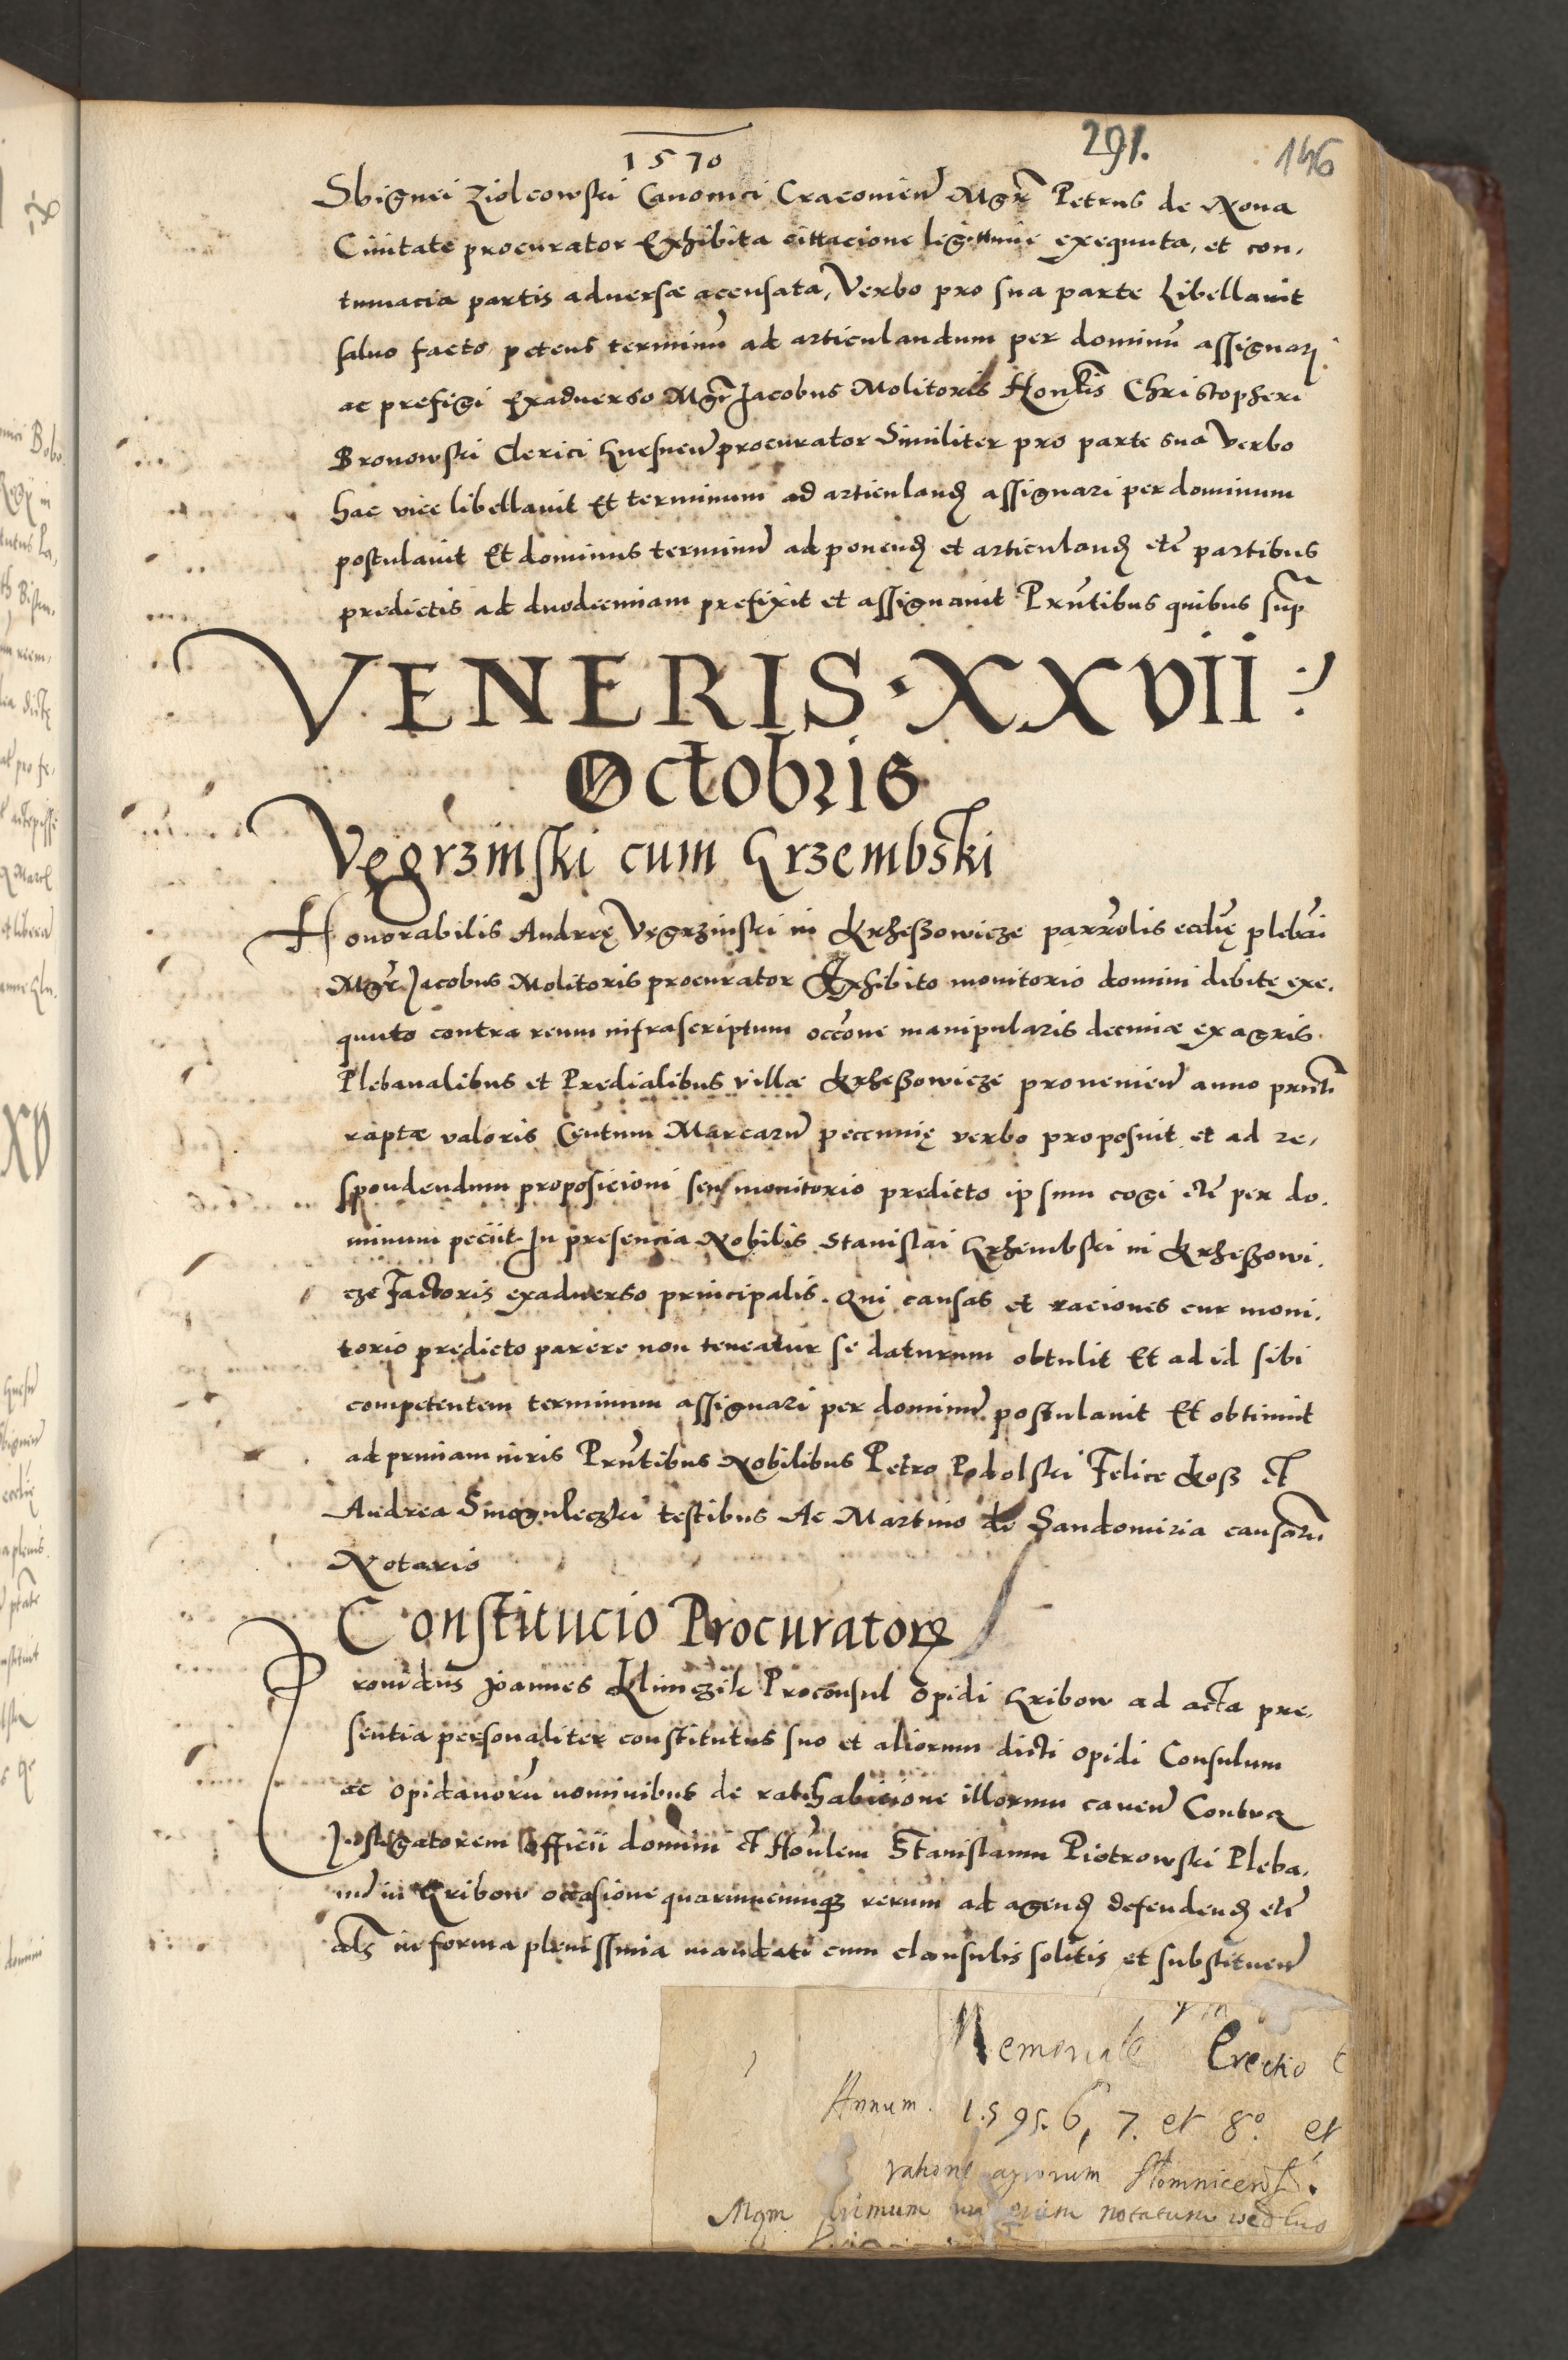 1570
291.
146
Sbignei Ziolcowski Canonici Cracovien Mgr Petrus de Nova
Civitate procurator Exhibita cittacione legittime exequuta, et con,
tumacia partis adversæ acusata, Verbo pro sua parte Libellavit
salvo facto, petens terminu ad articulandum per dominu assignari
ac prefigi Exadverso Mgr Jacobus Molitoris Honlis Christopheri
Bronowski Clerici Gnesnen procurator Similiter pro parte sua Verbo
hac vice libellavit Et terminum ad articuland assignari per dominum
postulavit Et dominus terminu ad ponend et articuland etc partibus
predictis ad duodecimam prefixit et assignavit Prntibus quibus sup
VENERIS · XXVII
Octobris
Vęgrzinski cum Grzembski
Honorabilis Andreę Vęgrzinski in Krheszowicze parrolis ecclię plebani
Mgr Jacobus Molitoris procurator Exhibito monitorio domini debite exe,
quuto contra reum infrascriptum occone manipularis decimæ ex agris
Plebanalibus et Predialibus villæ Krheszowicze provenien anno prnti
raptæ valoris Centum Marcaru peccunię verbo proposuit et ad re,
spondendum proposicioni seu monitorio predicto ipsum cogi etc per do,
minum peciit In presencia Nobilis Stanislai Grhembski in Krheszowi,
cze Factoris exadverso principalis. Qui causas et raciones cur moni,
torio predicto parere non teneatur se daturum obtulit Et ad id sibi
competentem terminum assignari per dominu postulavit Et obtinuit
ad primam iuris Prntibus Nobilibus Petro Podolski Felice Kosz et
Andrea Smoguleczki testibus Ac Martino de Sandomiria causaru
Notario
Constitucio Procurator
Providus Joannes Klimczik Proconsul Opidi Gribow ad acta pre,
sentia personaliter constitutus suo et aliorum dicti opidi Consulum
ac opidanoru nominibus de ratihabicione illorum caven Contra
Instigatorem Officii domini et Honlem Stanislaum Piotrowski Pleba,
nu in Gribow occasione quarumcumq rerum ad agend defendend etc
als in forma plenissima mandati cum clausulis solitis et substituen
Memoriale Erectio
Annum. 1.595. 6, 7. et 8º. et
ratione agrorum
Mgm notatum